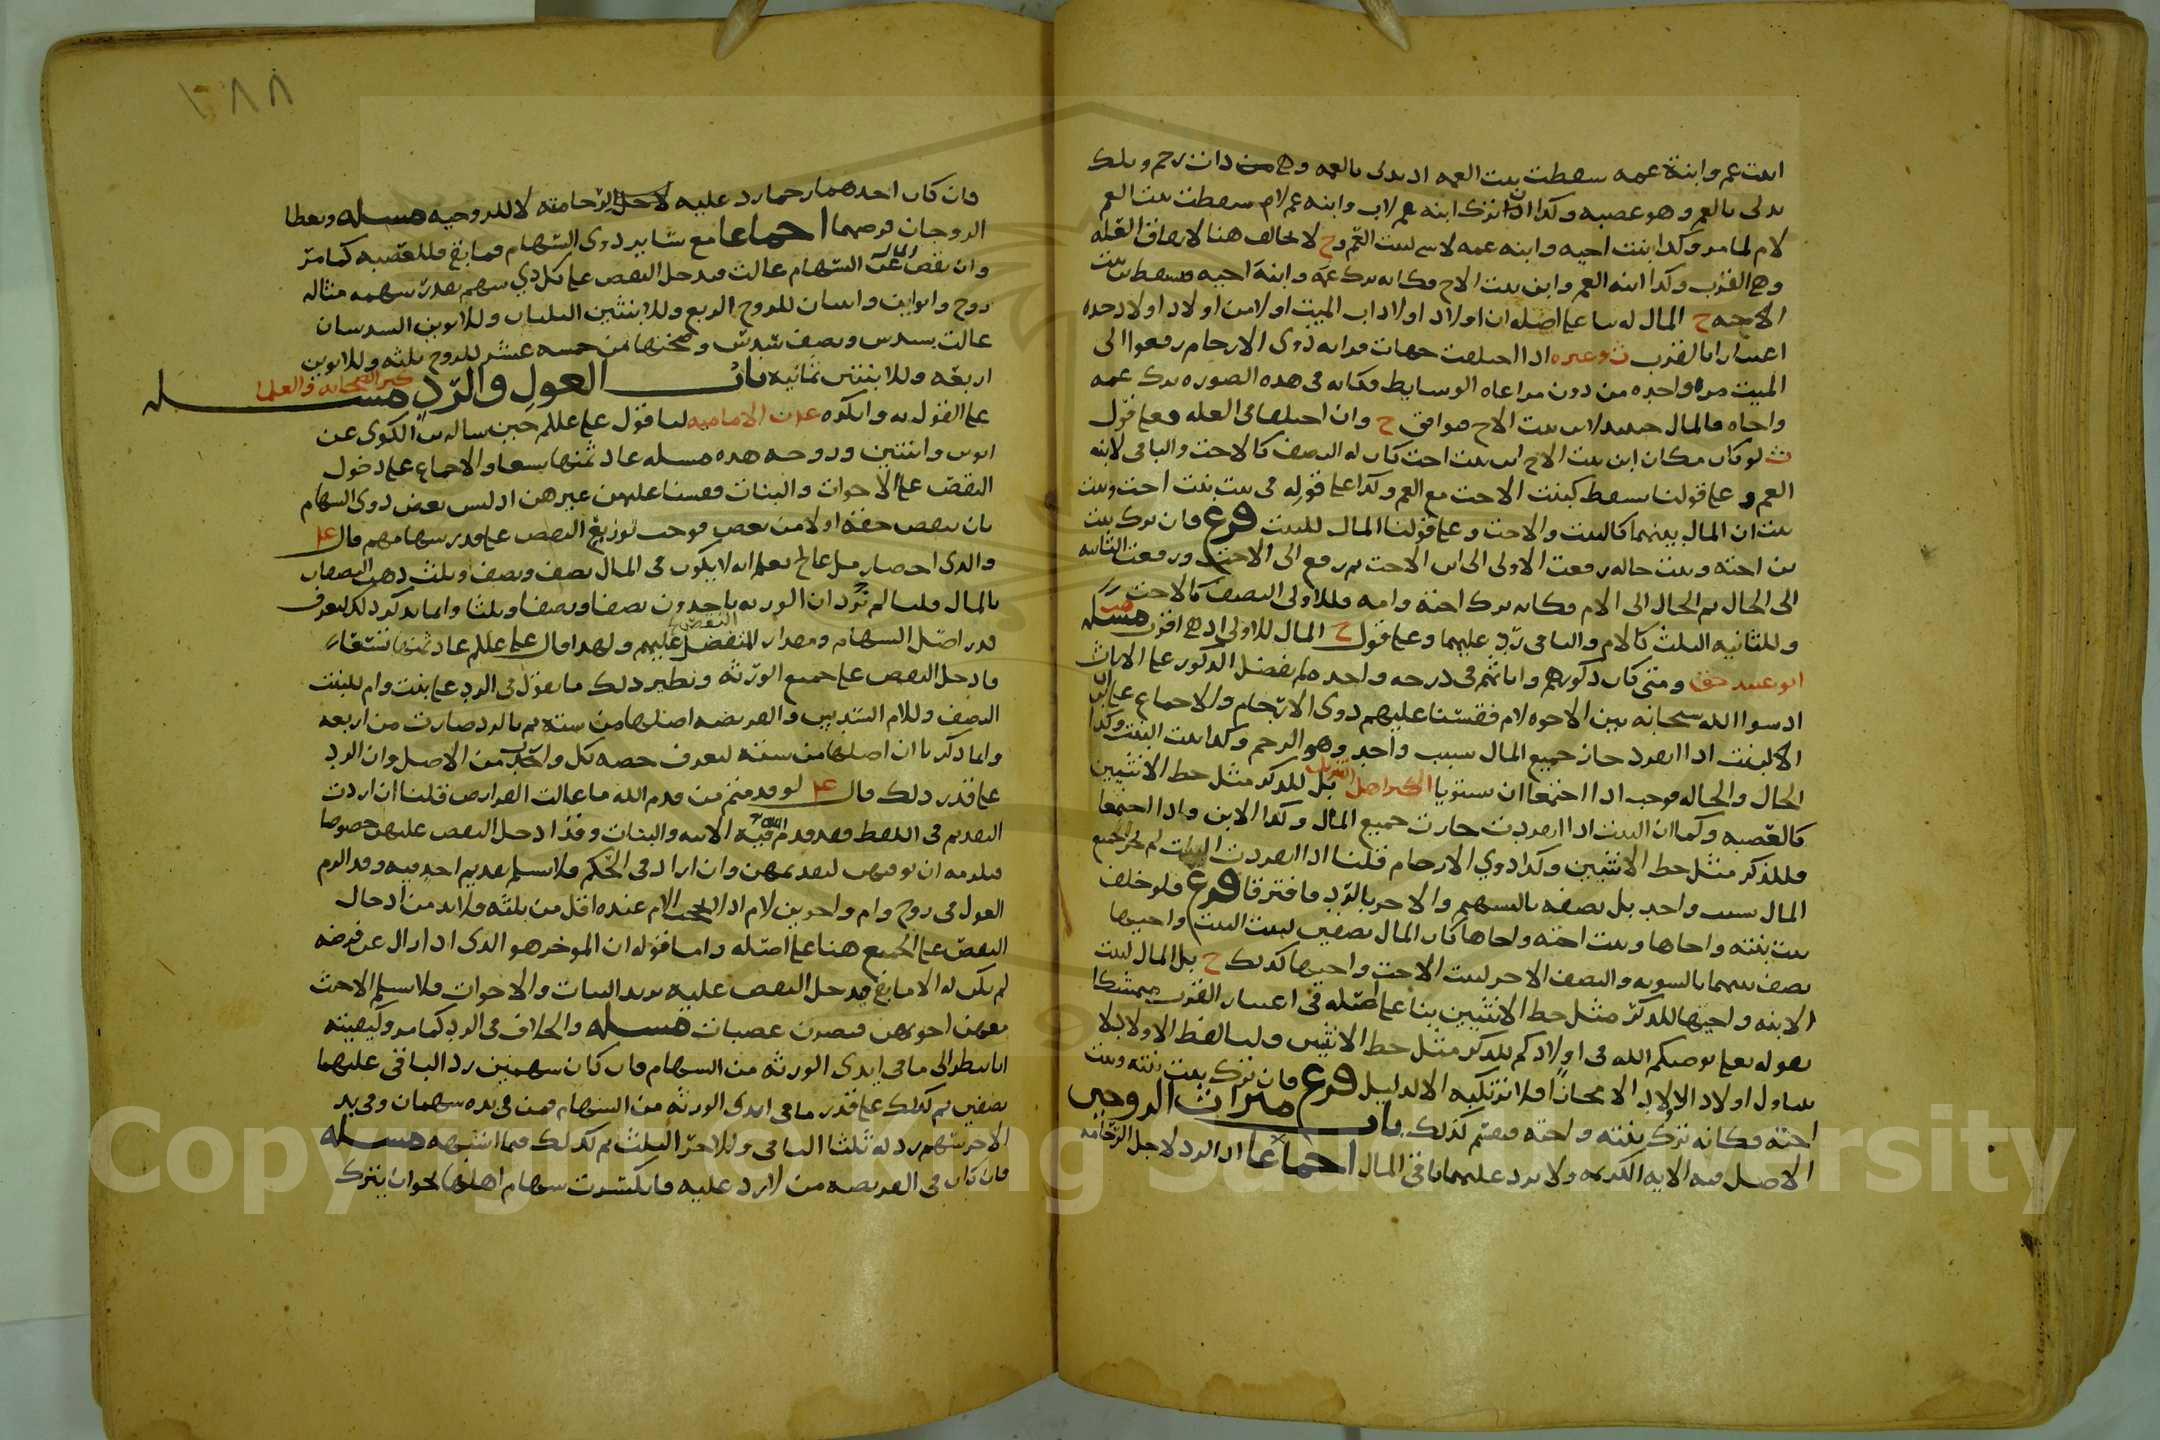 ابنت عم وابنة عمه سقطت بنت العمه اذ تدلى بالعمه وهي ذات رحم وتلك
تدلى بالعم وهو عصبه وكذا ان ترك ابنه عم لاب وابنه عم لام سقطت بنت العم
لام لما مر وكذا بنت اخيه وابنه عمه لاب لبنت العم وح لا يخالف هنا لاتفاق العله
وهي القرب وكذا ابنه العم وابن بنت الاخ فكانه ترك عمه وابنة اخيه فتسقط بنت
ح المال له بنا على اصله ان اولاد اولاد اب الميت اولا من اولاد اولاد جده
اعتبارا بالقرب ث وغيره اذا اختلفت جهات قرابه ذوي الارحام رفعوا الى
الميت مره واحده من دون مراعاه الوسايط فكانه في هذه الصوره ترك عمه
واخاه فالمال حينئذ لابن بنت الاخ فوافق ح وان اختلفا في العله فعلى قول
ث لو كان مكان ابن بنت الاخ ابن بنت اخت كان له النصف كالاخت والباقي لابنه
العم وعلى قولنا يسقط كبنت الاخت مع العم وكذا على قوله في بنت بنت اخت وبنت
بنت ان المال بينهما كالبنت والاخت وعلى قولنا المال للبنت فرع فان ترك بنت
بن اخته وبنت خاله رفعت الاولى الى ابن الاخت ثم رفع الى الاخت ورفعت الثانيه
الى الخال ثم الخال الى الام فكانه ترك اخته وامه فللاولى النصف كالاخت
وللثانيه الثلث كالام والباقي رد عليهما وعلى قول ح المال للاولى اذ هي اقرب مسئله
ابو عبيد حق ومتى كان ذكورهم واناثهم في درجه واحده لم يفضل الذكور على الاناث
اذ سوا الله سبحانه بين الاخوه لام فقسنا عليهم ذوي الارحام والاجماع على ان
الخال والخاله فوجب اذا اجتمعا ان يستويا اكثر اهل التنزيل بل للذكر مثل حظ الانثيين
كالعصبه وكما ان البنت اذا انفردت حازت جميع المال وكذا الابن واذا اجتمعا
فللذكر مثل حظ الانثيين وكذا ذوي الارحام قلنا اذا انفردت البنات لم تحز جميع
المال بسبب واحد بل نصفه بالسهم والاخر بالرد فافترقا فرع فلو خلف
بنت بنته واخاها وبنت اخته واخاها كان المال نصفين لبنت البنت واخيها
نصف بينهما بالسويه والنصف الاخر لبنت الاخت واخيها كذلك ح بل المال لبنت
الابنه واخيها للذكر مثل حظ الانثيين بنا على اصله في اعتبار القرب متمسكا
بقوله تعالى يوصيكم الله في اولادكم للذكر مثل حظ الانثيين ولنا لفظ الاولاد لا
يتناول اولاد الاولاد الا مجازا فلا نرتكبه الا لدليل فرع فان ترك بنت بنته وبنت
اخته فكانه ترك بنته واخته فيقسم كذلك باب ميراث الزوجين
الاصل فيه الايه الكريمه ولا يرد عليهما باقي المال اجماعا اذ الرد لاجل الرحامه
فان كان احدهما رحما رد عليه لاجل الرحامه لا للزوجيه مسله ويعطا
الزوجان فرضهما اجماعا مع ساير ذوي السهام فما بقي فللعصبه كما مر
وان نقص المال عن السهام عالت فيدخل النقص على كل ذي سهم بقدر سهمه مثاله
زوج وابوان وابنتان للزوج الربع وللابنتين الثلثان وللابوين السدسان
عالت بسدس ونصف سدس وصحتها من خمسه عشر للزوج ثلثه وللابوين
اربعه وللابنتين ثمانيه باب العول والرد مسله كثير الصحابه والعلما
على القول به وانكره عت الاماميه لنا قول علي علم حين ساله بن الكوى عن
ابوين وابنتين وزوجه هذه مسله عاد ثمنها تسعا والاجماع على دخول
النقص على الاخوات والبنات فقسنا عليهن غيرهن اذ ليس بعض ذوي السهام
بان ينقص حقه اولا من بعض فوجب توزيع النقص على قدر سهامهم قال عم
والذي احصا رمل عالج يعلم انه لا يكون في المال نصف ونصف وثلث ذهب النصفان
بالمال قلنا لم نرد ان الورثه ياخذون نصفا ونصفا وثلثا وانما يذكر ذلك ليعرف
قدر اصل السهام ومقدار النقص عليهم ولهذا قال علي علم عاد ثمنها تسعا
فادخل النقص على جميع الورثه ونظير ذلك ما نقول في الرد على بنت وام للبنت
النصف وللام السدس والفريضه اصلها من سته ثم بالرد صارت من اربعه
وانما ذكرنا ان اصلها من سته ليعرف حصه كل واحد من الاصل وان الرد
على قدر ذلك قال عم لو قدمتم من قدم الله ما عالت الفرايض قلنا ان اردت
التقديم في اللفظ فقد قدم في الايه الابنه والبنات وقد ادخل النقص عليهن خصوصا
فيلزمه ان يوفيهن لتقديمهن وان اراد في الحكم فلا نسلم تقديم احد فيه وقد الزم
العول في زوج وام واخوين لام اذ لا تحجب الام عنده اقل من ثلثه فلا بد من ادخال
النقص على الجميع هنا على اصله واما قوله ان الموخر هو الذي اذا زال عن فرضه
لم يكن له الا ما بقي فيدخل النقص عليه يريد البنات والاخوات فلا نسلم الاخت
معهن اخوهن فيصرن عصبات مسله والخلاف في الرد كما مر وكيفيته
انا ننظر الى ما في ايدي الورثه من السهام فان كان سهمين رد الباقي عليهما
نصفين ثم كذلك على قدر ما في ايدي الورثه من السهام فمن في يده سهمان وفي يد
الاخر سهم رد له ثلثا الباقي وللاخر الثلث ثم كذلك فيما اشبهه مسله
فان كان في الفريضه من لا يرد عليه فانكسرت سهام اهلها نحو ان يترك